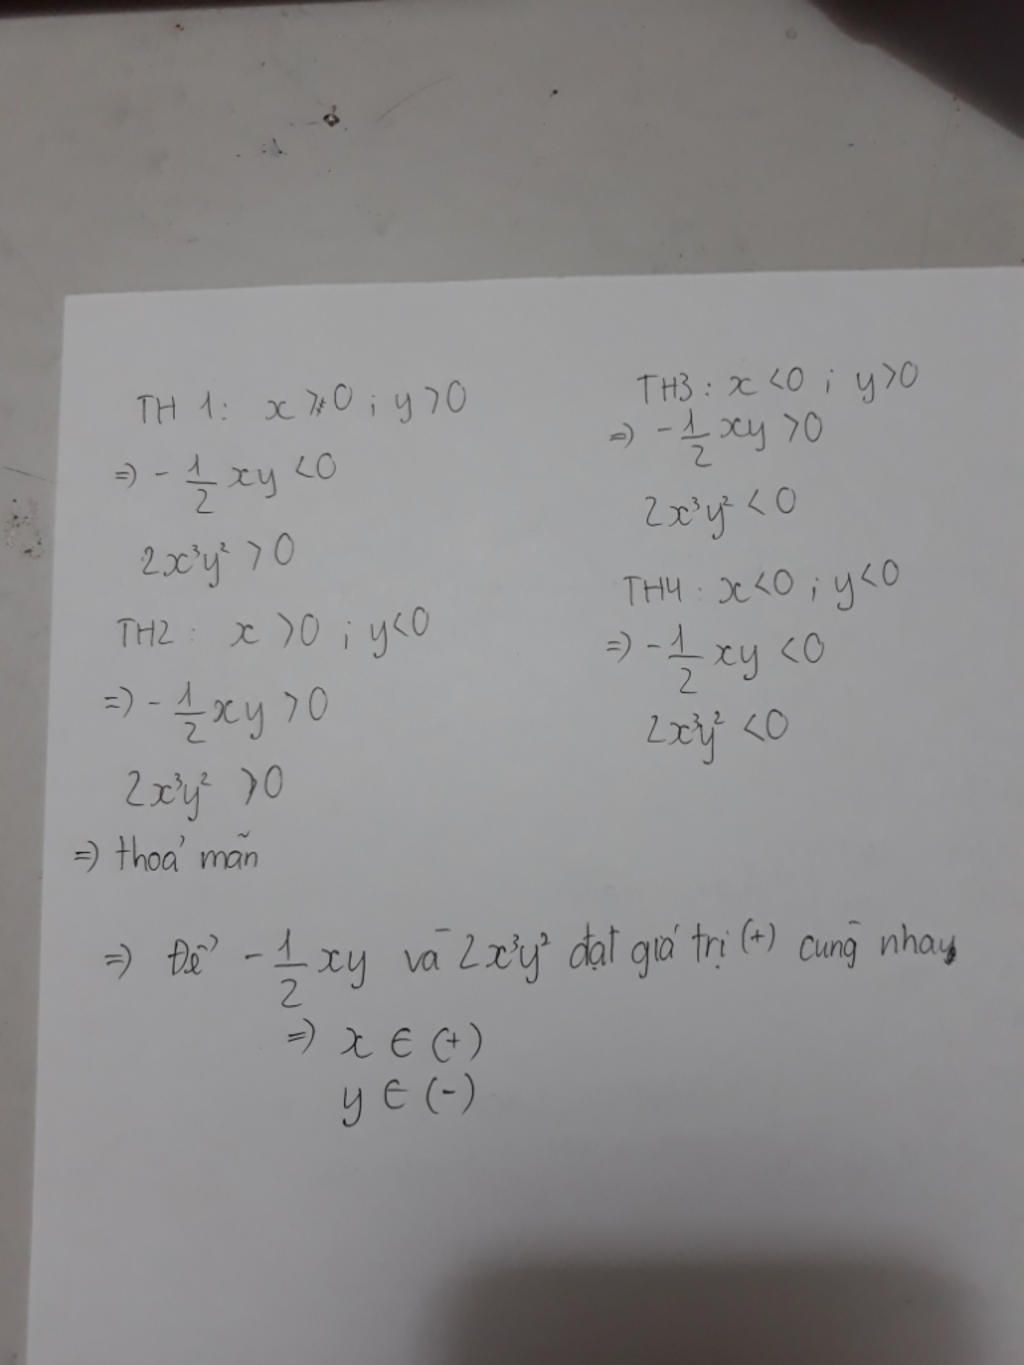 TH 1: x > 0 ; y > 0
=> - 1/2 xy < 0
2x³y² > 0
TH2 : x > 0 ; y < 0
=> - 1/2 xy > 0
2x³y² > 0
=> thoả mãn
TH3 : x < 0 ; y > 0
=> - 1/2 xy > 0
2x³y² < 0
TH4 : x < 0 ; y < 0
=> - 1/2 xy < 0
2x³y² < 0
=> Để - 1/2 xy và 2x³y² đạt giá trị (+) cùng nhau
=> x ∈ (+)
y ∈ (-)